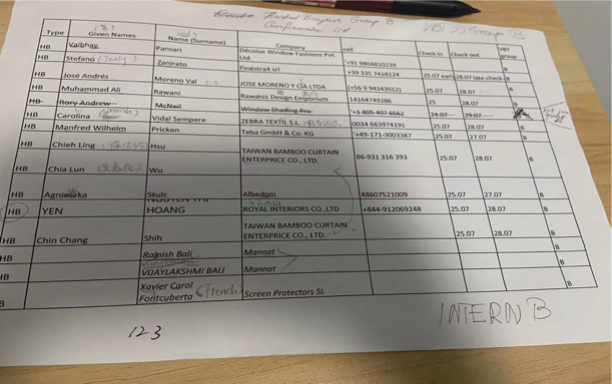 Group B
VBT 22 Group B
Type Given Names Name (Surname) Company cell Check in Check out VBT group
HB Vaibhav Pansari Décolux Window Fashions Pvt. Ltd. +91 9804810239
HB Stefano (Italy) Zanirato Finestra4 srl +39 335.7418124 25.07 early 28.07 late check- B
HB José Andrés Moreno Val JOSE MORENO Y CÍA LTDA (+56 9 94343552) 25.07 28.07 B
HB Muhammad Ali Rawani Rawanis Design Emporium 14164749286 25 28.07 B
HB Rory Andrew McNeil Window Shading Pro +1-805-407 6662 24.07 29.07
HB Carolina Vidal Sempere ZEBRA TEXTIL S.L. 0034 663974191 25.07 28.07 B
HB Manfred Wilhelm Pricken Teba GmbH & Co. KG +49-171-3003387 25.07 27.07 B
HB Chieh Ling Hsu TAIWAN BAMBOO CURTAIN ENTERPRICE CO., LTD. 86-931 316 393 25.07 28.07 B
HB Chia Lun Wu
HB Agnieszka Szulc Albedom 48607521009 25.07 27.07 B
HB YEN HOANG ROYAL INTERIORS CO.,LTD +844-912069248 25.07 28.07 B
HB Chin Chang Shih TAIWAN BAMBOO CURTAIN ENTERPRICE CO., LTD. 25.07 28.07 B
HB Rajnish Bali Mannat B
HB VIJAYLAKSHMI BALI Mannat
B Xavier Carol Fontcuberta (French) Screen Protectors SL B
123
INTERN B